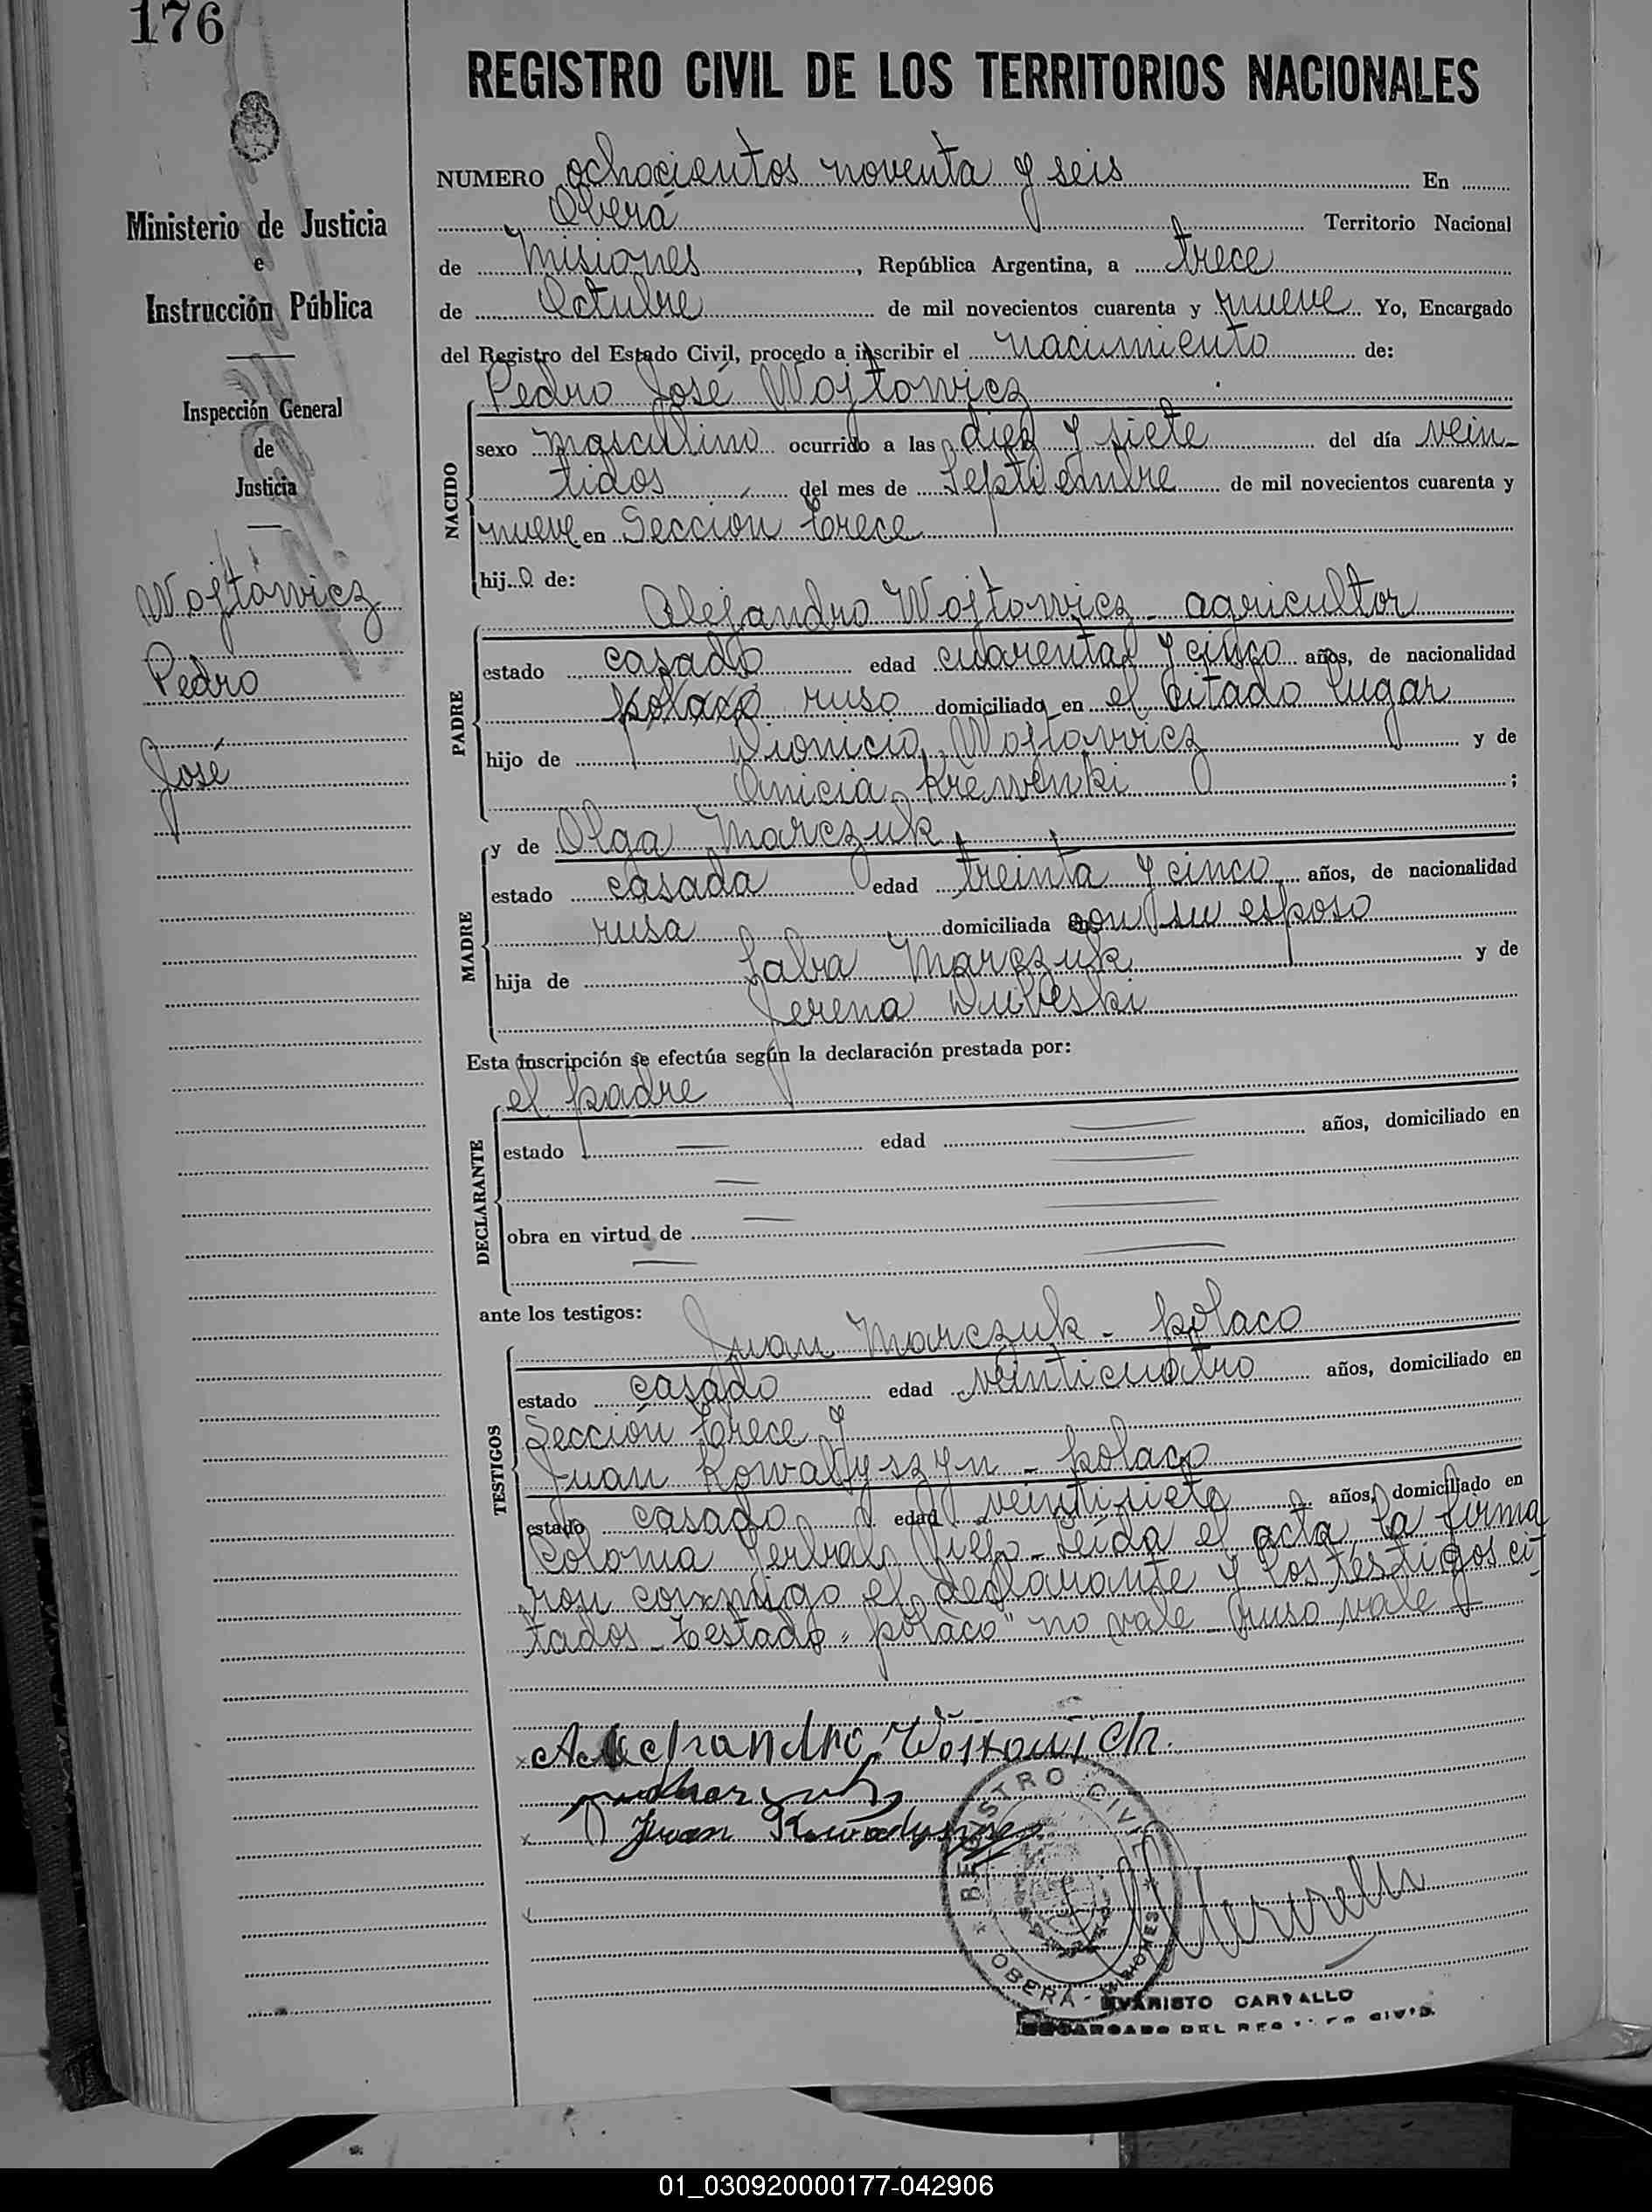 176
REGISTRO CIVIL DE LOS TERRITORIOS NACIONALES
Ministerio de Justicia
e
Instrucción Pública
Inspección General
de
Justicia
Wojtowicz
Pedro
José
NUMERO ochocientos noventa y seis En
Oberá Territorio Nacional
de Misiones, República Argentina, a trece
de Octubre de mil novecientos cuarenta y nueve Yo, Encargado
del Registro del Estado Civil, procedo a inscribir el nacimiento de:
Pedro José Wojtowicz
NACIDO
sexo masculino ocurrido a las diez y siete del día vein-
tidos del mes de Septiembre de mil novecientos cuarenta y
nueve en Sección trece
hijo de:
Alejandro Wojtowicz - agricultor
PADRE
estado casado edad cuarenta y cinco años, de nacionalidad
polaco ruso domiciliado en el citado lugar
hijo de Dionicio Wojtowicz y de
Anicia Krewenki ;
MADRE
y de Olga Marczuk
estado casada edad treinta y cinco años, de nacionalidad
rusa domiciliada con su esposo
hija de Saba Marczuk y de
Jerena Dubeski
Esta inscripción se efectúa según la declaración prestada por:
el padre
DECLARANTE
estado edad años, domiciliado en
obra en virtud de
ante los testigos:
Juan Marczuk - polaco
TESTIGOS
estado casado edad veinticuatro años, domiciliado en
Sección trece y
Juan Kowalyszyn - polaco
estado casado edad veintisiete años, domiciliado en
Colonia Yerbal Viejo - Leída el acta la firma
ron conmigo el declarante y los testigos ci-
tados - testado "polaco" no vale - ruso vale
Alejandro
Juan
REGISTRO CIVIL
OBERA - MISIONES
EVARISTO CARVALLO
ENCARGADO DEL REGISTRO CIVIL
01_030920000177-042906